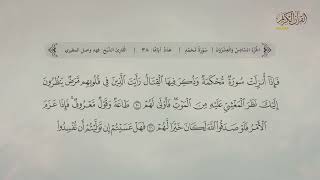 القرآن الكريم
الجزء السادس والعشرون | سورة محمد | عدد آياتها: ٣٨ | القارئ الشيخ: فهد واصل المطيري
فَإِذَآ أُنزِلَتْ سُورَةٌ مُّحْكَمَةٌ وَذُكِرَ فِيهَا ٱلْقِتَالُ رَأَيْتَ ٱلَّذِينَ فِى قُلُوبِهِم مَّرَضٌ يَنظُرُونَ
إِلَيْكَ نَظَرَ ٱلْمَغْشِىِّ عَلَيْهِ مِنَ ٱلْمَوْتِ فَأَوْلَىٰ لَهُمْ ۝٢٠ طَاعَةٌ وَقَوْلٌ مَّعْرُوفٌ فَإِذَا عَزَمَ
ٱلْأَمْرُ فَلَوْ صَدَقُوا۟ ٱللَّهَ لَكَانَ خَيْرًا لَّهُمْ ۝٢١ فَهَلْ عَسَيْتُمْ إِن تَوَلَّيْتُمْ أَن تُفْسِدُوا۟